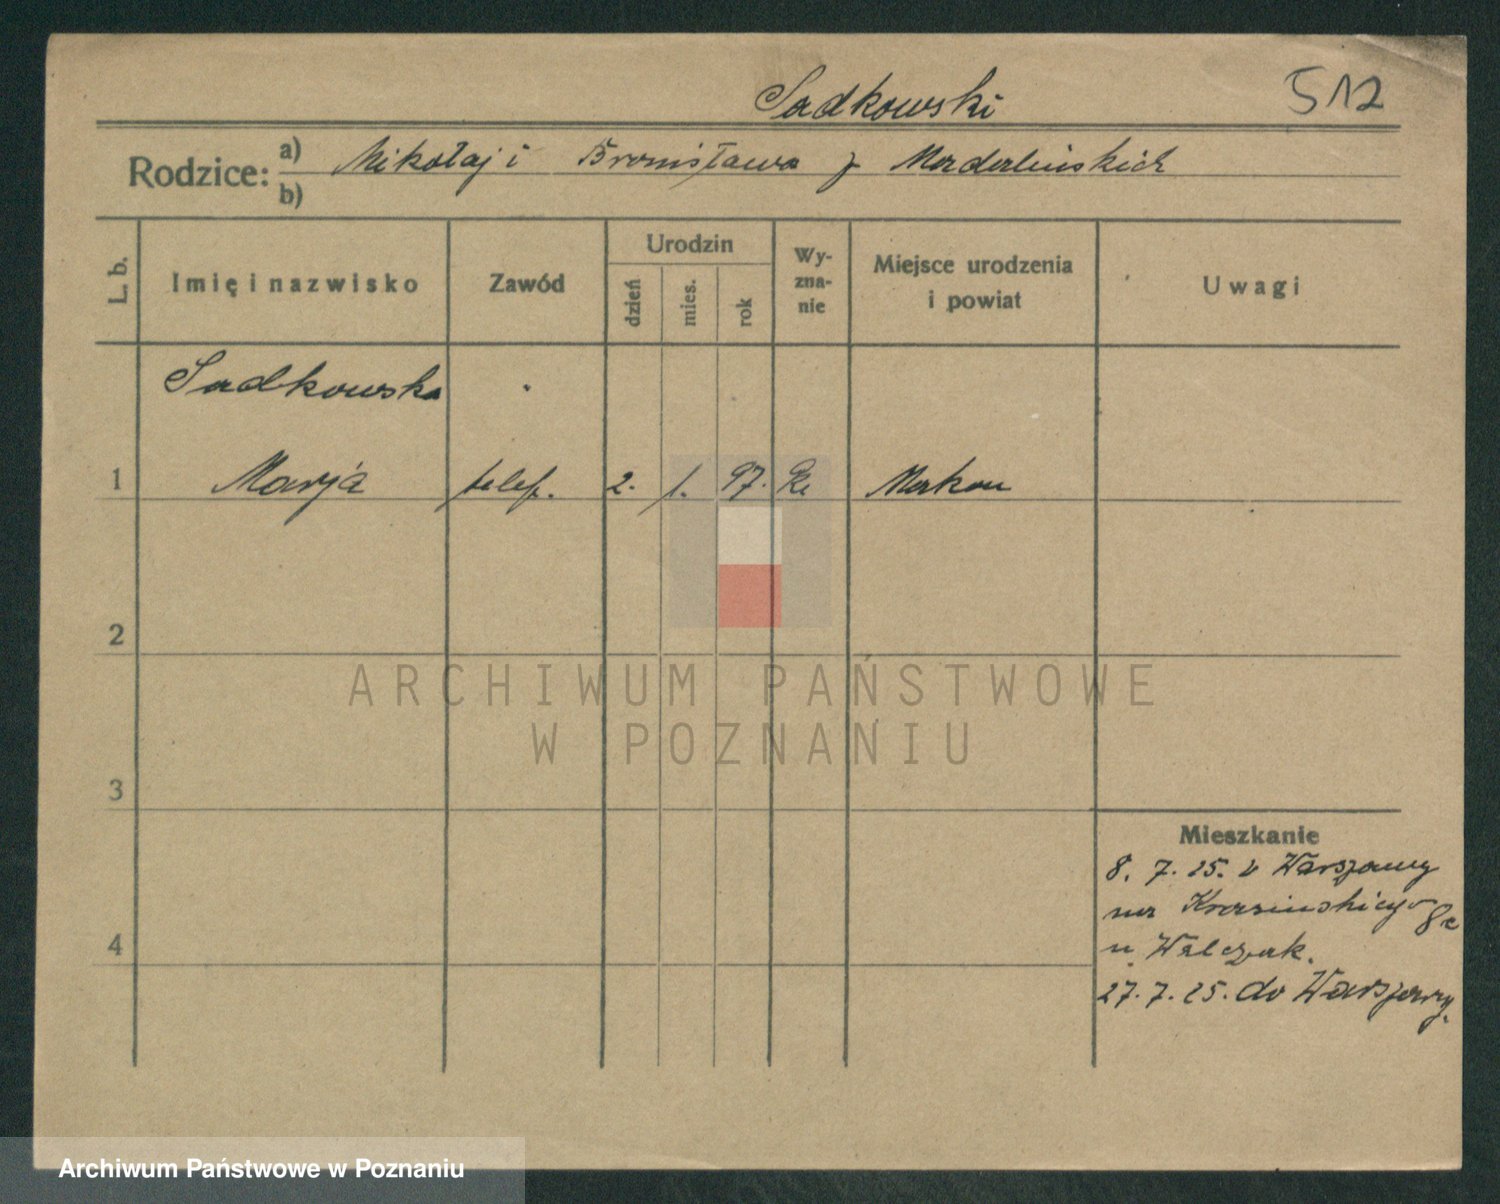 Sadkowski 512
Rodzice: a) Mikołaj i Bronisława z Madalińskich
b)
L. b. Imię i nazwisko Zawód Urodzin dzień mies. rok Wy-zna-nie Miejsce urodzenia i powiat Uwagi
Sadkowska
1 Marja telef. 2. 1. 97. Rk Makow
2
ARCHIWUM PAŃSTWOWE
W POZNANIU
3
Mieszkanie
8. 7. 25. z Warszawy
na Krasińskiego 8c
4 u Walczak.
27. 7. 25. do Warszawy.
Archiwum Państwowe w Poznaniu